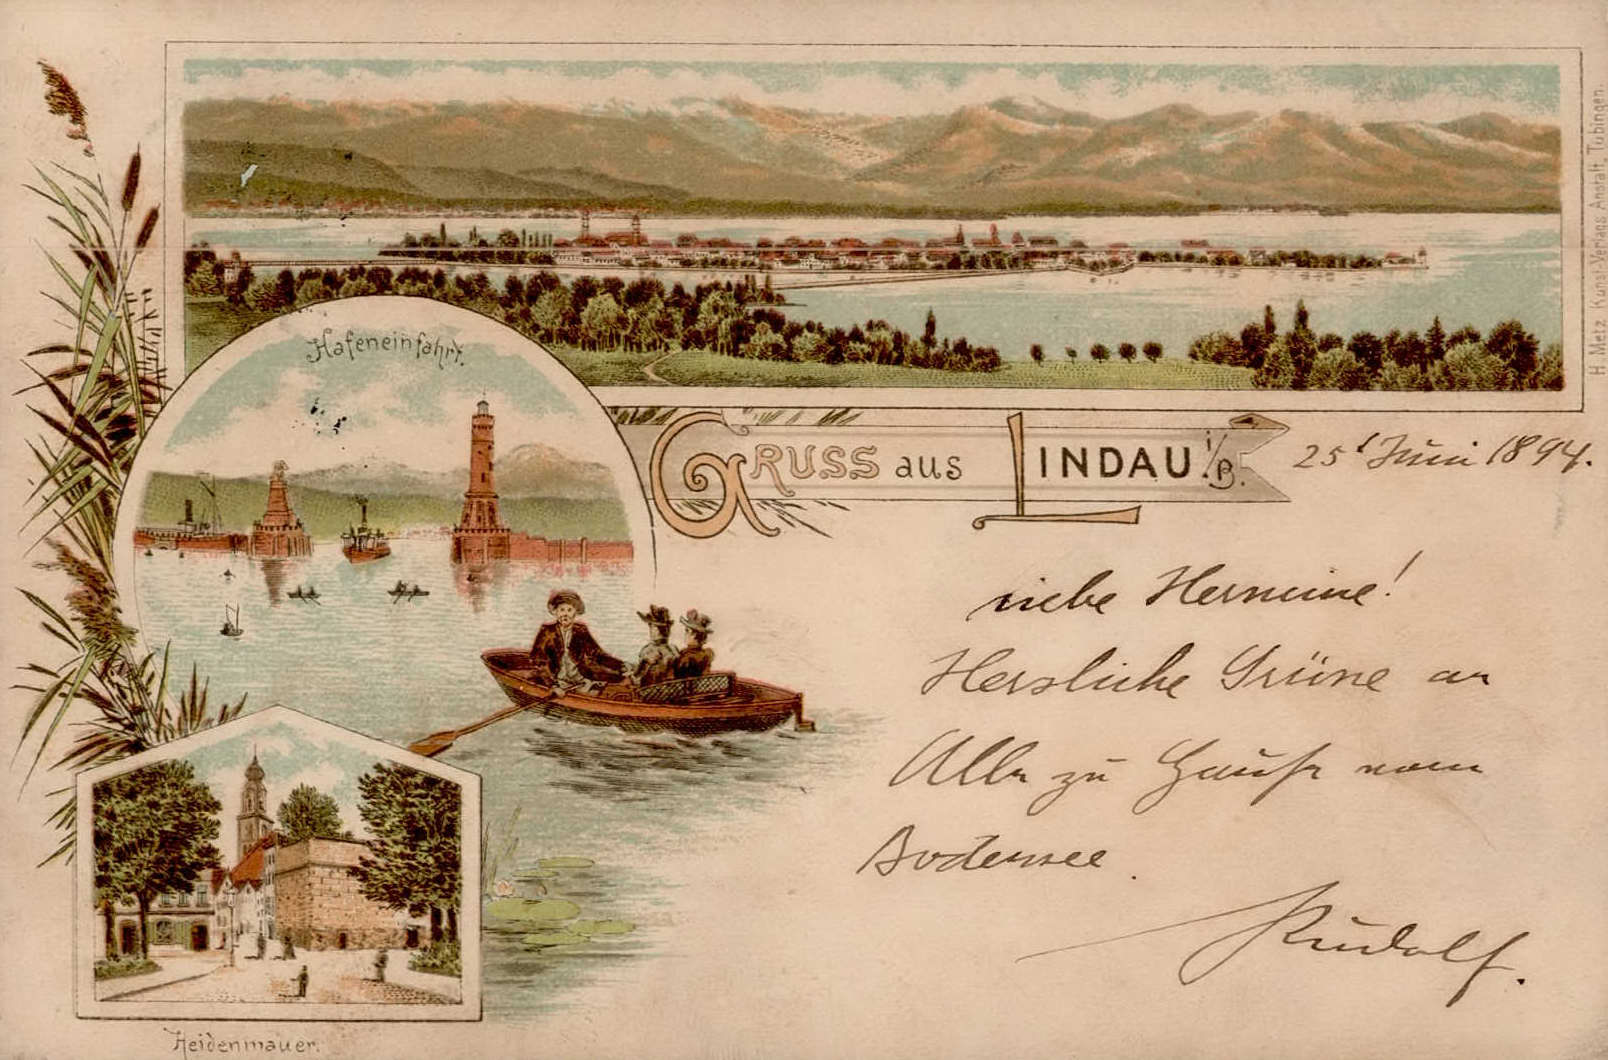 H. Metz Kunst-Verlags Anstalt, Tübingen.
Hafeneinfahrt.
GRUSS aus LINDAU i/B.
25t Juni 1894.
Liebe Hermine!
Herzliche Grüsse an
Alle zu Hause vom
Bodensee.
Rudolf.
Heidenmauer.